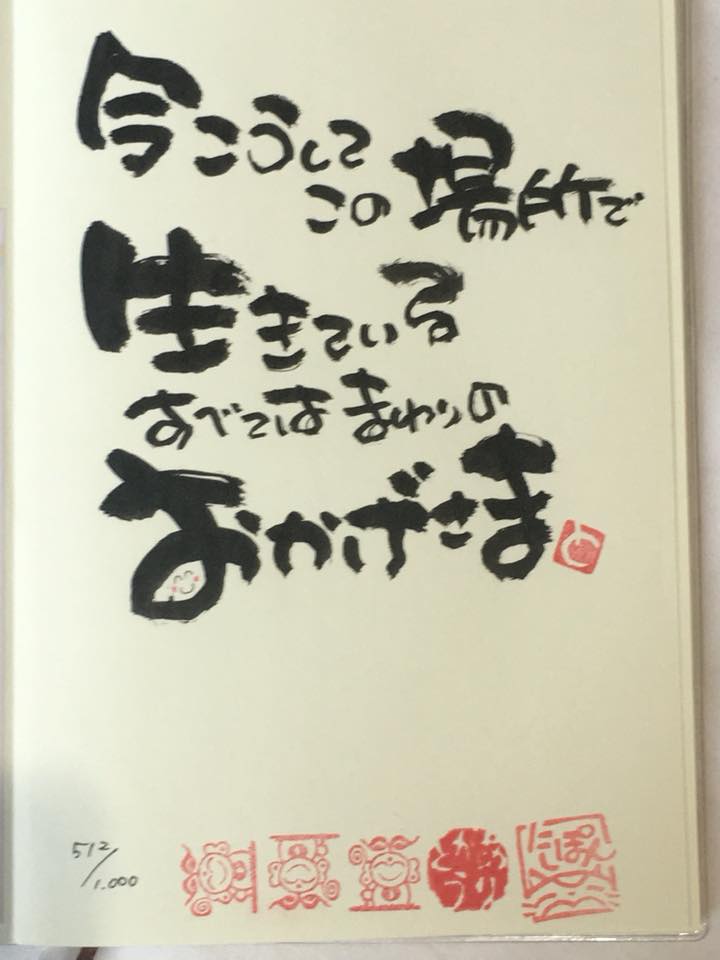 今こうして
この場所で
生きている
すべてはまわりの
おかげさま
512/1.000
にっぽん